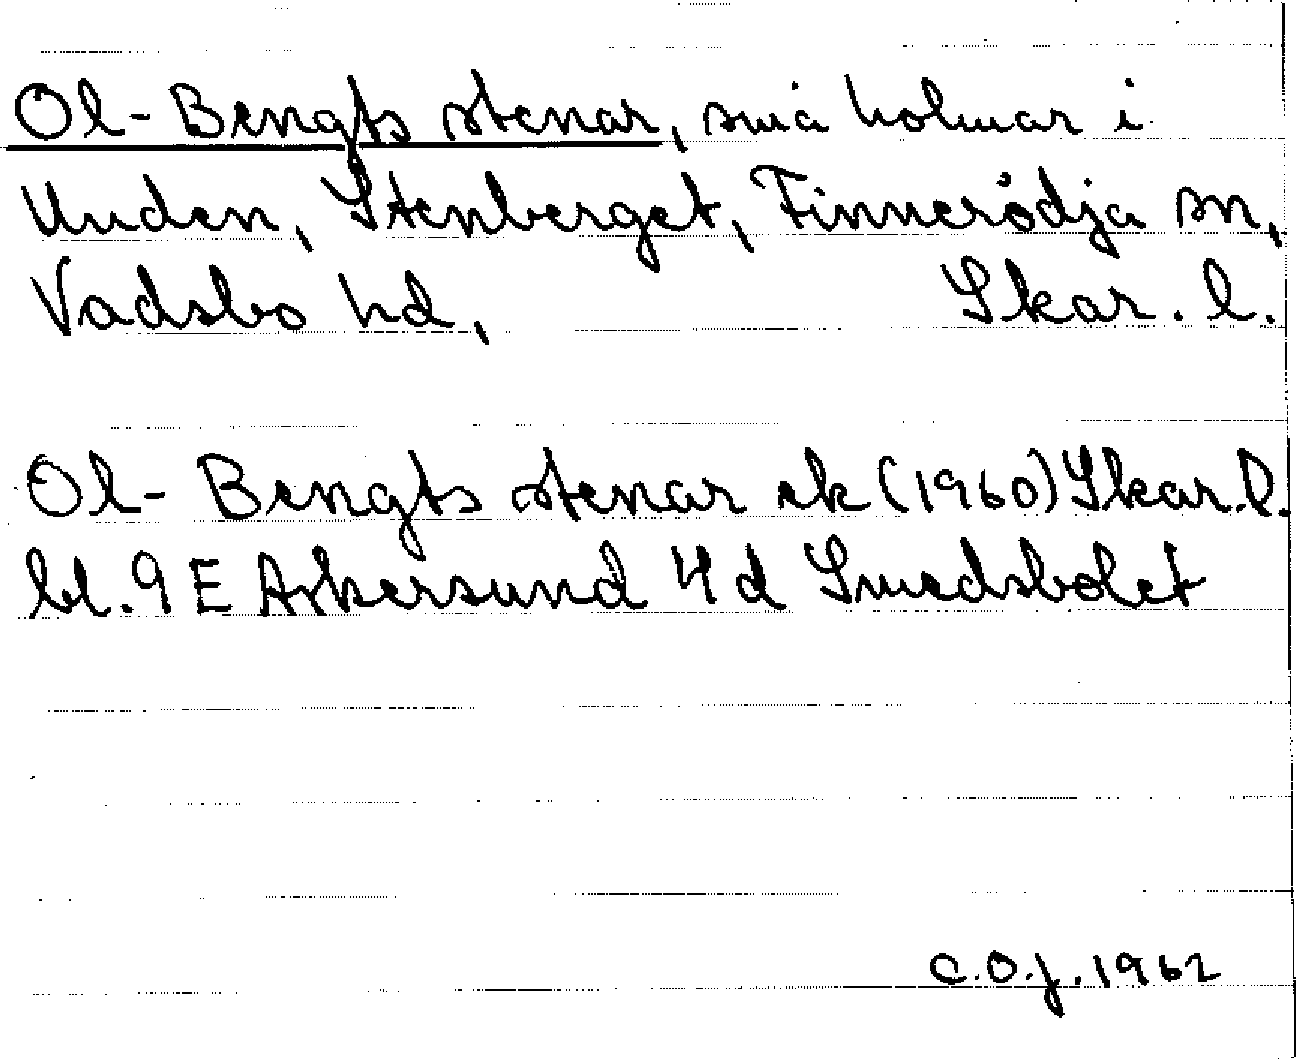 Ol-Bengts stenar, små holmar i
Unden, Stenberget, Finnerödja sn,
Vadsbo hd, Skar. l.
Ol-Bengts stenar ek (1960) Skar. l.
bl. 9 E Askersund 4 d Smedsbolet
C.O.J. 1962